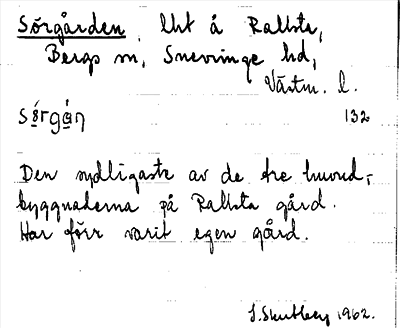 Sörgården, lht å Rallsta,
Bergs sn, Snevringe hd,
Västm. l.
sö̀rgá̄n 132
Den sydligaste av de tre huvud-
byggnaderna på Rallsta gård.
Har förr varit egen gård.
1962.